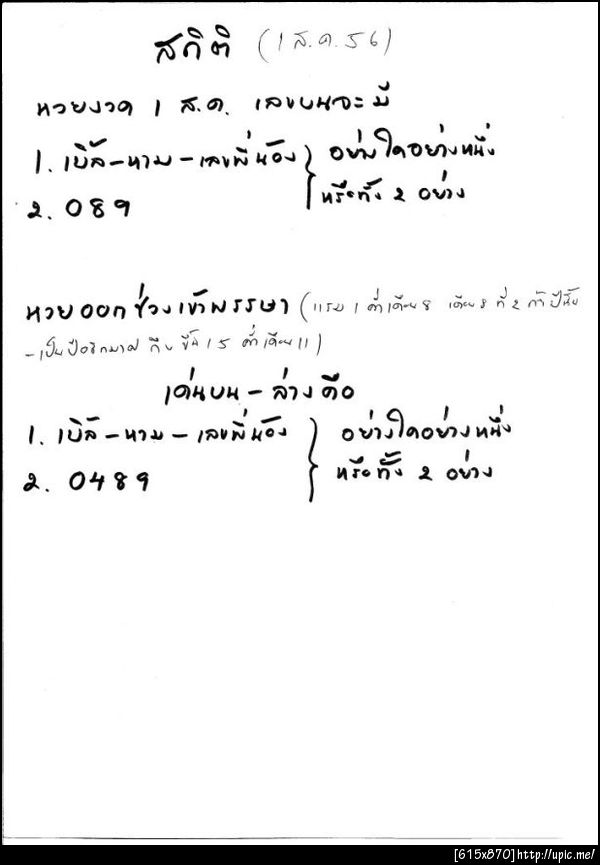 สถิติ (1 ส.ค.56)
หวยงวด 1 ส.ค. เลขบนจะมี
1. เบิ้ล-หาม-เลขพี่น้อง } อย่างใดอย่างหนึ่ง
2. 089 หรือทั้ง 2 อย่าง
หวยออกช่วงเข้าพรรษา (แรม 1 ค่ำเดือน 8 เดือน 8 ที่ 2 ถ้าปีนั้น
-เป็นปีอธิกมาส ถึง ขึ้น 15 ค่ำเดือน 11)
เด่นบน-ล่างคือ
1. เบิ้ล-หาม-เลขพี่น้อง } อย่างใดอย่างหนึ่ง
2. 0489 หรือทั้ง 2 อย่าง
[615x870]http://upic.me/